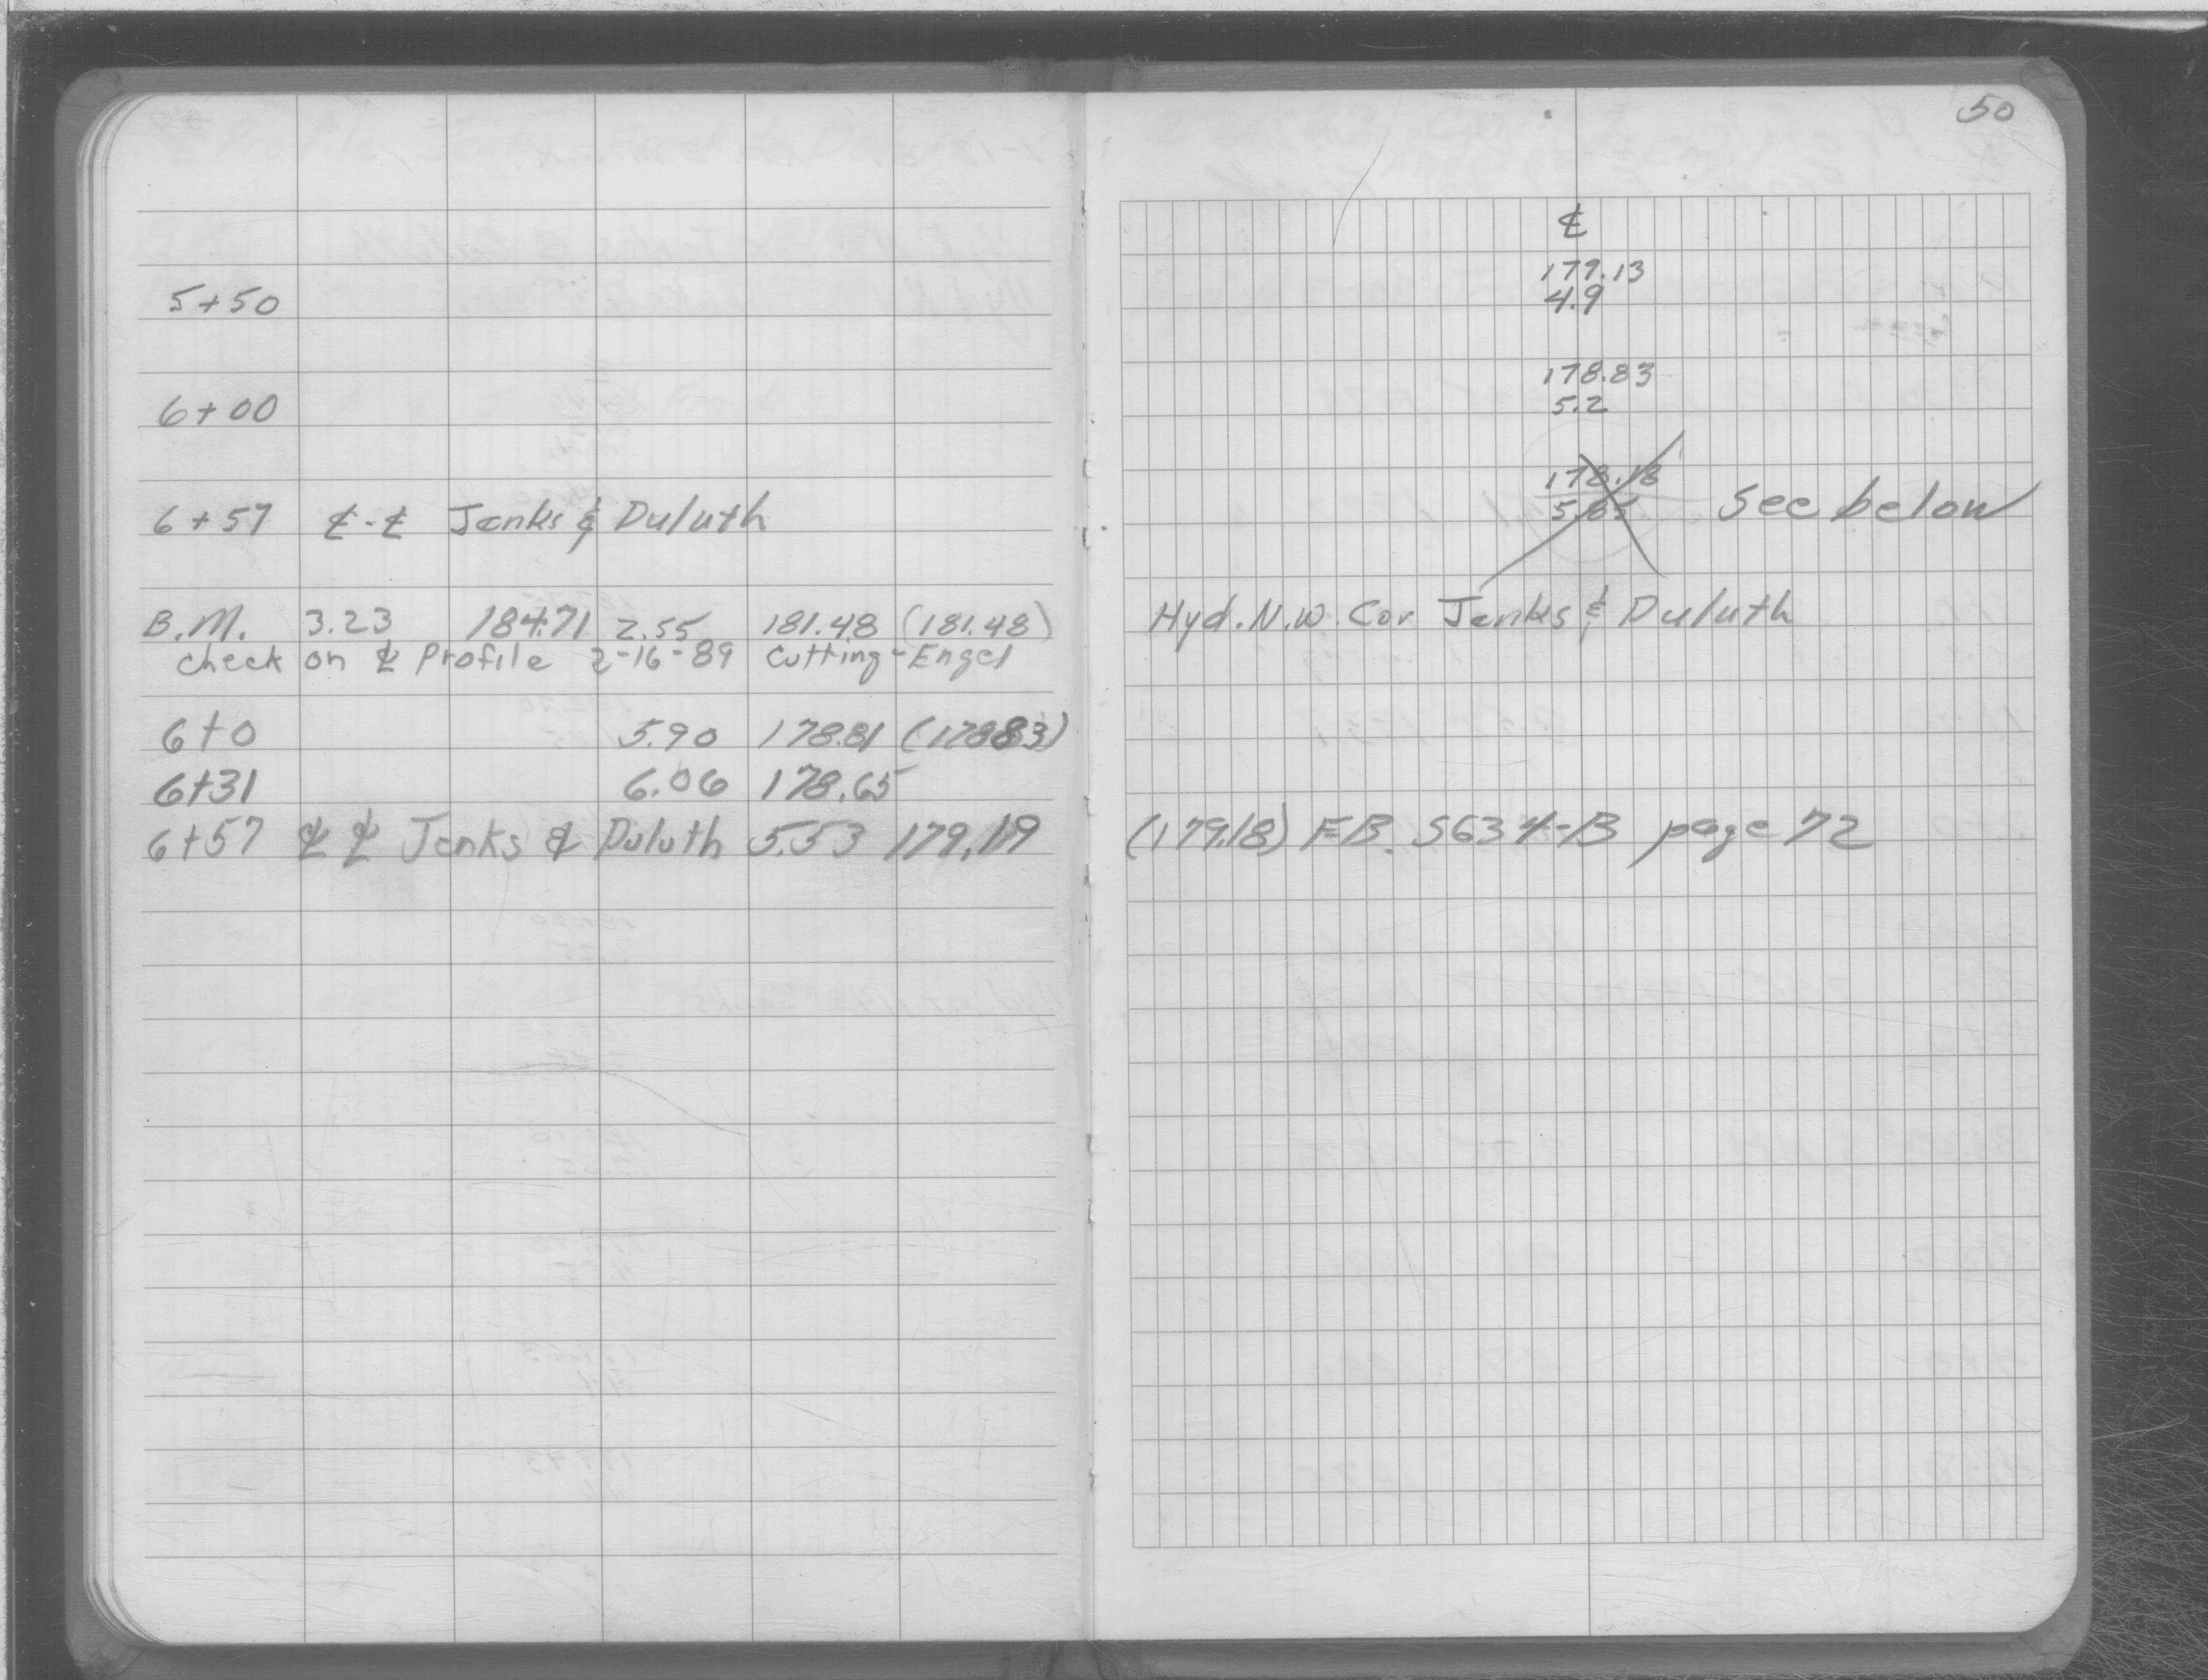 50
℄
179.13
5+50 4.9
178.83
6+00 5.2
178.18
6+57 ℄-℄ Jenks & Duluth 5.65 See below
B.M. 3.23 184.71 2.55 181.48 (181.48) Hyd. N.W. Cor Jenks & Duluth
check on ℄ Profile 2-16-89 Cutting-Engel
6+0 5.90 178.81 (178.83)
6+31 6.06 178.65
6+57 ℄ ℄ Jenks & Duluth 5.53 179.19 (179.18) F.B. 5634-B page 72